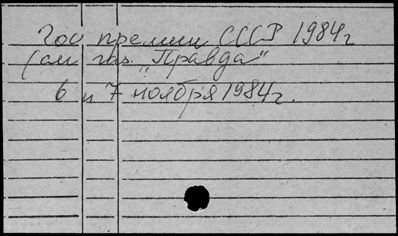 Гос премии СССР 1984 г
(см газ. „Правда"
6 и 7 ноября 1984 г.